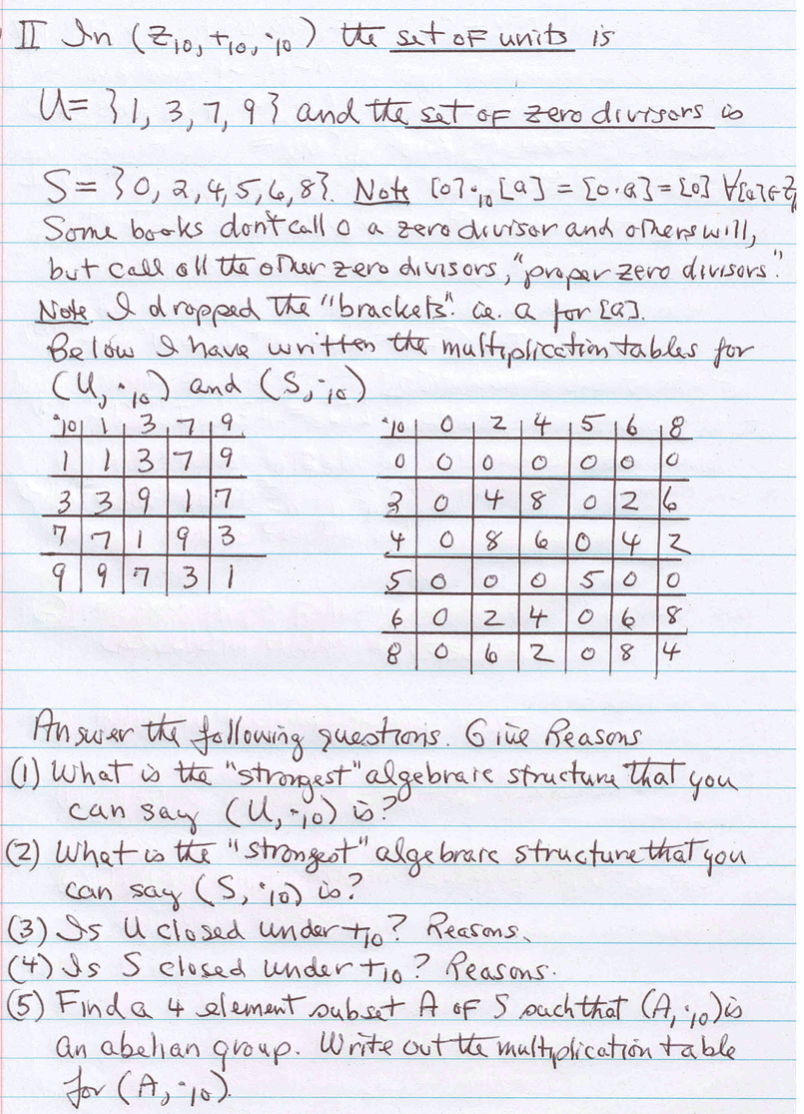 II In (Z₁₀, +₁₀, ·₁₀) the set of units is
U = {1, 3, 7, 9} and the set of zero divisors is
S = {0, 2, 4, 5, 6, 8}. Note [0]·₁₀[a] = [0·a] = [0] ∀[a]∈Z₁₀
Some books don't call 0 a zero divisor and others will,
but call all the other zero divisors, "proper zero divisors".
Note. I dropped the "brackets". ie. a for [a].
Below I have written the multiplication tables for
(U, ·₁₀) and (S, ·₁₀)
·10 | 1 | 3 | 7 | 9
1 | 1 | 3 | 7 | 9
3 | 3 | 9 | 1 | 7
7 | 7 | 1 | 9 | 3
9 | 9 | 7 | 3 | 1
·10 | 0 | 2 | 4 | 5 | 6 | 8
0 | 0 | 0 | 0 | 0 | 0 | 0
2 | 0 | 4 | 8 | 0 | 2 | 6
4 | 0 | 8 | 6 | 0 | 4 | 2
5 | 0 | 0 | 0 | 5 | 0 | 0
6 | 0 | 2 | 4 | 0 | 6 | 8
8 | 0 | 6 | 2 | 0 | 8 | 4
Answer the following questions. Give Reasons
(1) What is the "strongest" algebraic structure that you
can say (U, ·₁₀) is?
(2) What is the "strongest" algebraic structure that you
can say (S, ·₁₀) is?
(3) Is U closed under +₁₀? Reasons.
(4) Is S closed under +₁₀? Reasons.
(5) Find a 4 element subset A of S such that (A, ·₁₀) is
an abelian group. Write out the multiplication table
for (A, ·₁₀).